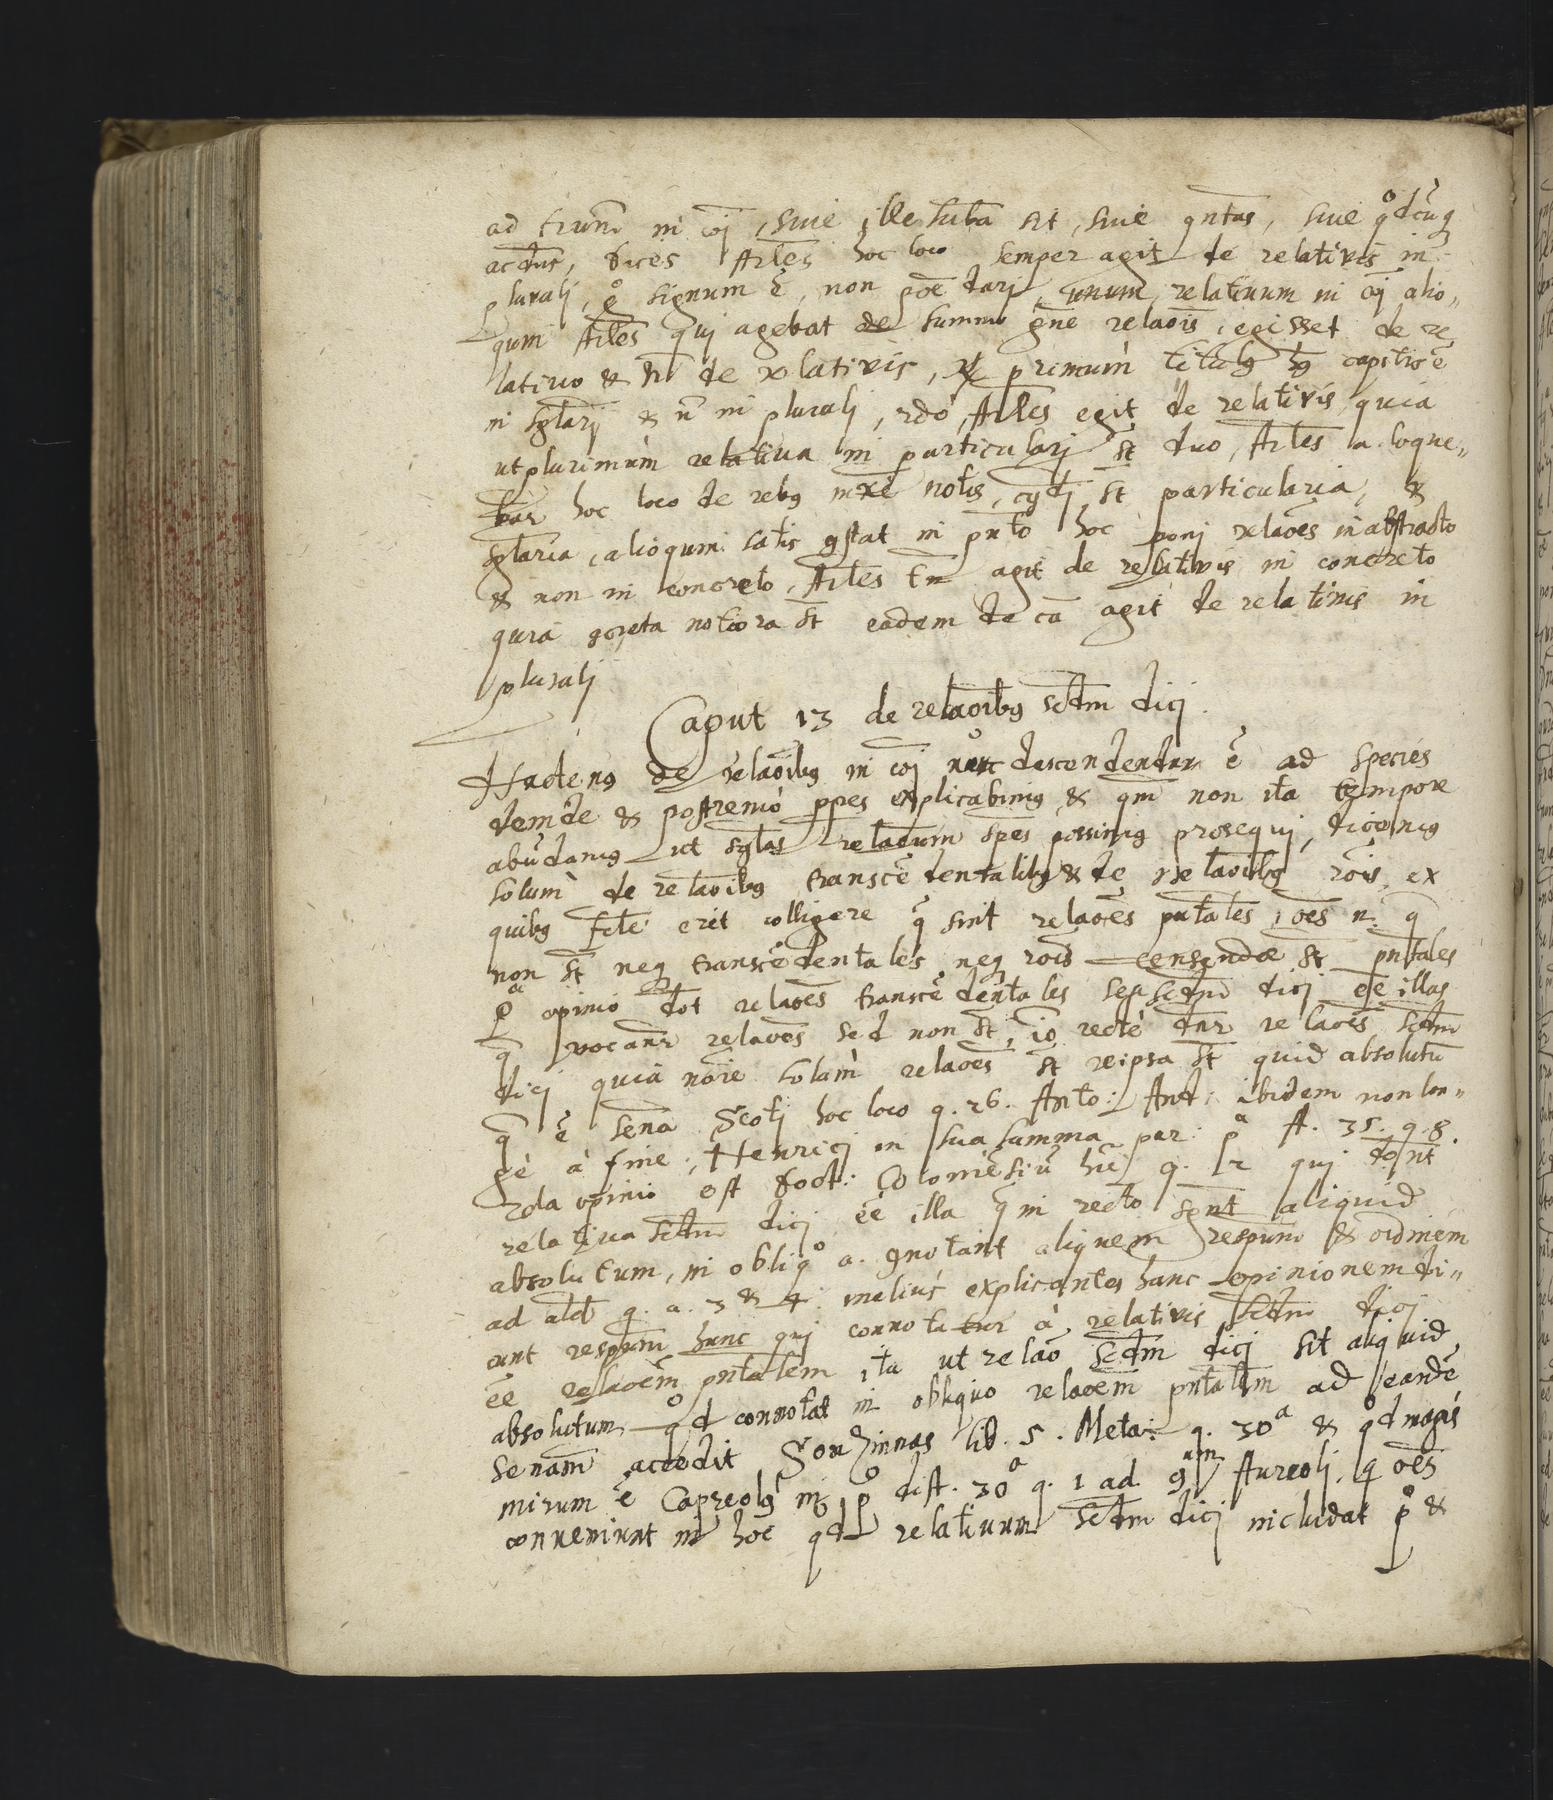 ad trũm in cõi, siue ille suba sit, siue qntas, siue qºdcũq
acdñs, dices Arles hoc loco semper agit de relativis in
plurali, gº signum ẽ, non põe dari, unum relatiuum in cõi alio„
quin Arles qui agebat de summo gñe relaõis, egisset de re
latiuo & nõ de relativis, primum capitis ẽ
in sglari & ñ in plurali, 2do, Arles egit de relativis quia
ut plurimùm relatiua in particulari st duo, Arles a. loque„
bar hoc loco de rebq mxe notis, st particularia, &
sglaria, alioquin satis qstat in pñto hoc poni relaões in abstracto
& non in concreto, Arles tñ agit de relativis in concreto
quia qcreta notiora st eadem de cã agit de relatiuis in
plurali
Caput 13 de relaõibq sctdm dici.
Hactenq de relaõibq in cõi nũc descendendum ẽ ad species
deinde & postremò ppes explicabimq & qm̃ non ita tempore
abũdamq ut sglas relaõum spẽs possimq prosequi, dicemq
solum de relaõibq transcẽdentalibq & de relaõibq rõis ex
quibq fcle erit colligere q̃ sint relaões pñtales, oẽs n. q̃
non st neq transcẽdentales neq rõis censendæ st pñtales
pª opinio dõt relaões transcẽdentales seu sctdm dici eẽ illas
q̃ vocantr relaões sed non st, iõ rectè dñr relaões sctdm
dici quia nõie solùm relaões st reipsa st quid absolutũ
q̃ ẽ sena Scoti hoc loco q. 26. Anto: And: ibidem non lon„
gè à fine, Henrici in sua summa par: pª A. 35. q. 8.
2da opinio est doct: Coloniẽsiũ hic q. 12 qui dõnt
relatiua sctdm dici eẽ illa q̃ in recto sgnt aliquid
absolutum, in obliqº a. qnotant aliquem respum & ordinem
ad alid q. a. 3 & 4. meliùs explicantes hanc opinionem di„
cunt respum hunc qui connotatur à relativis sctdm dici
eẽ relaoẽm pñtalem ita ut relaõ sctdm dici sit aliquid
absolutum qºd connotat in obliquo relaoẽm pñtalem ad eandẽ
senam accedit Sonzinnas lib. 5. Meta: q. 30ª & qºd magis
mirum ẽ Capreolq in pº dist. 30ª q. 1 ad 9um Aureoli, q oẽs
conveniunt in hoc qd relatiuum sctdm dici includat pº &